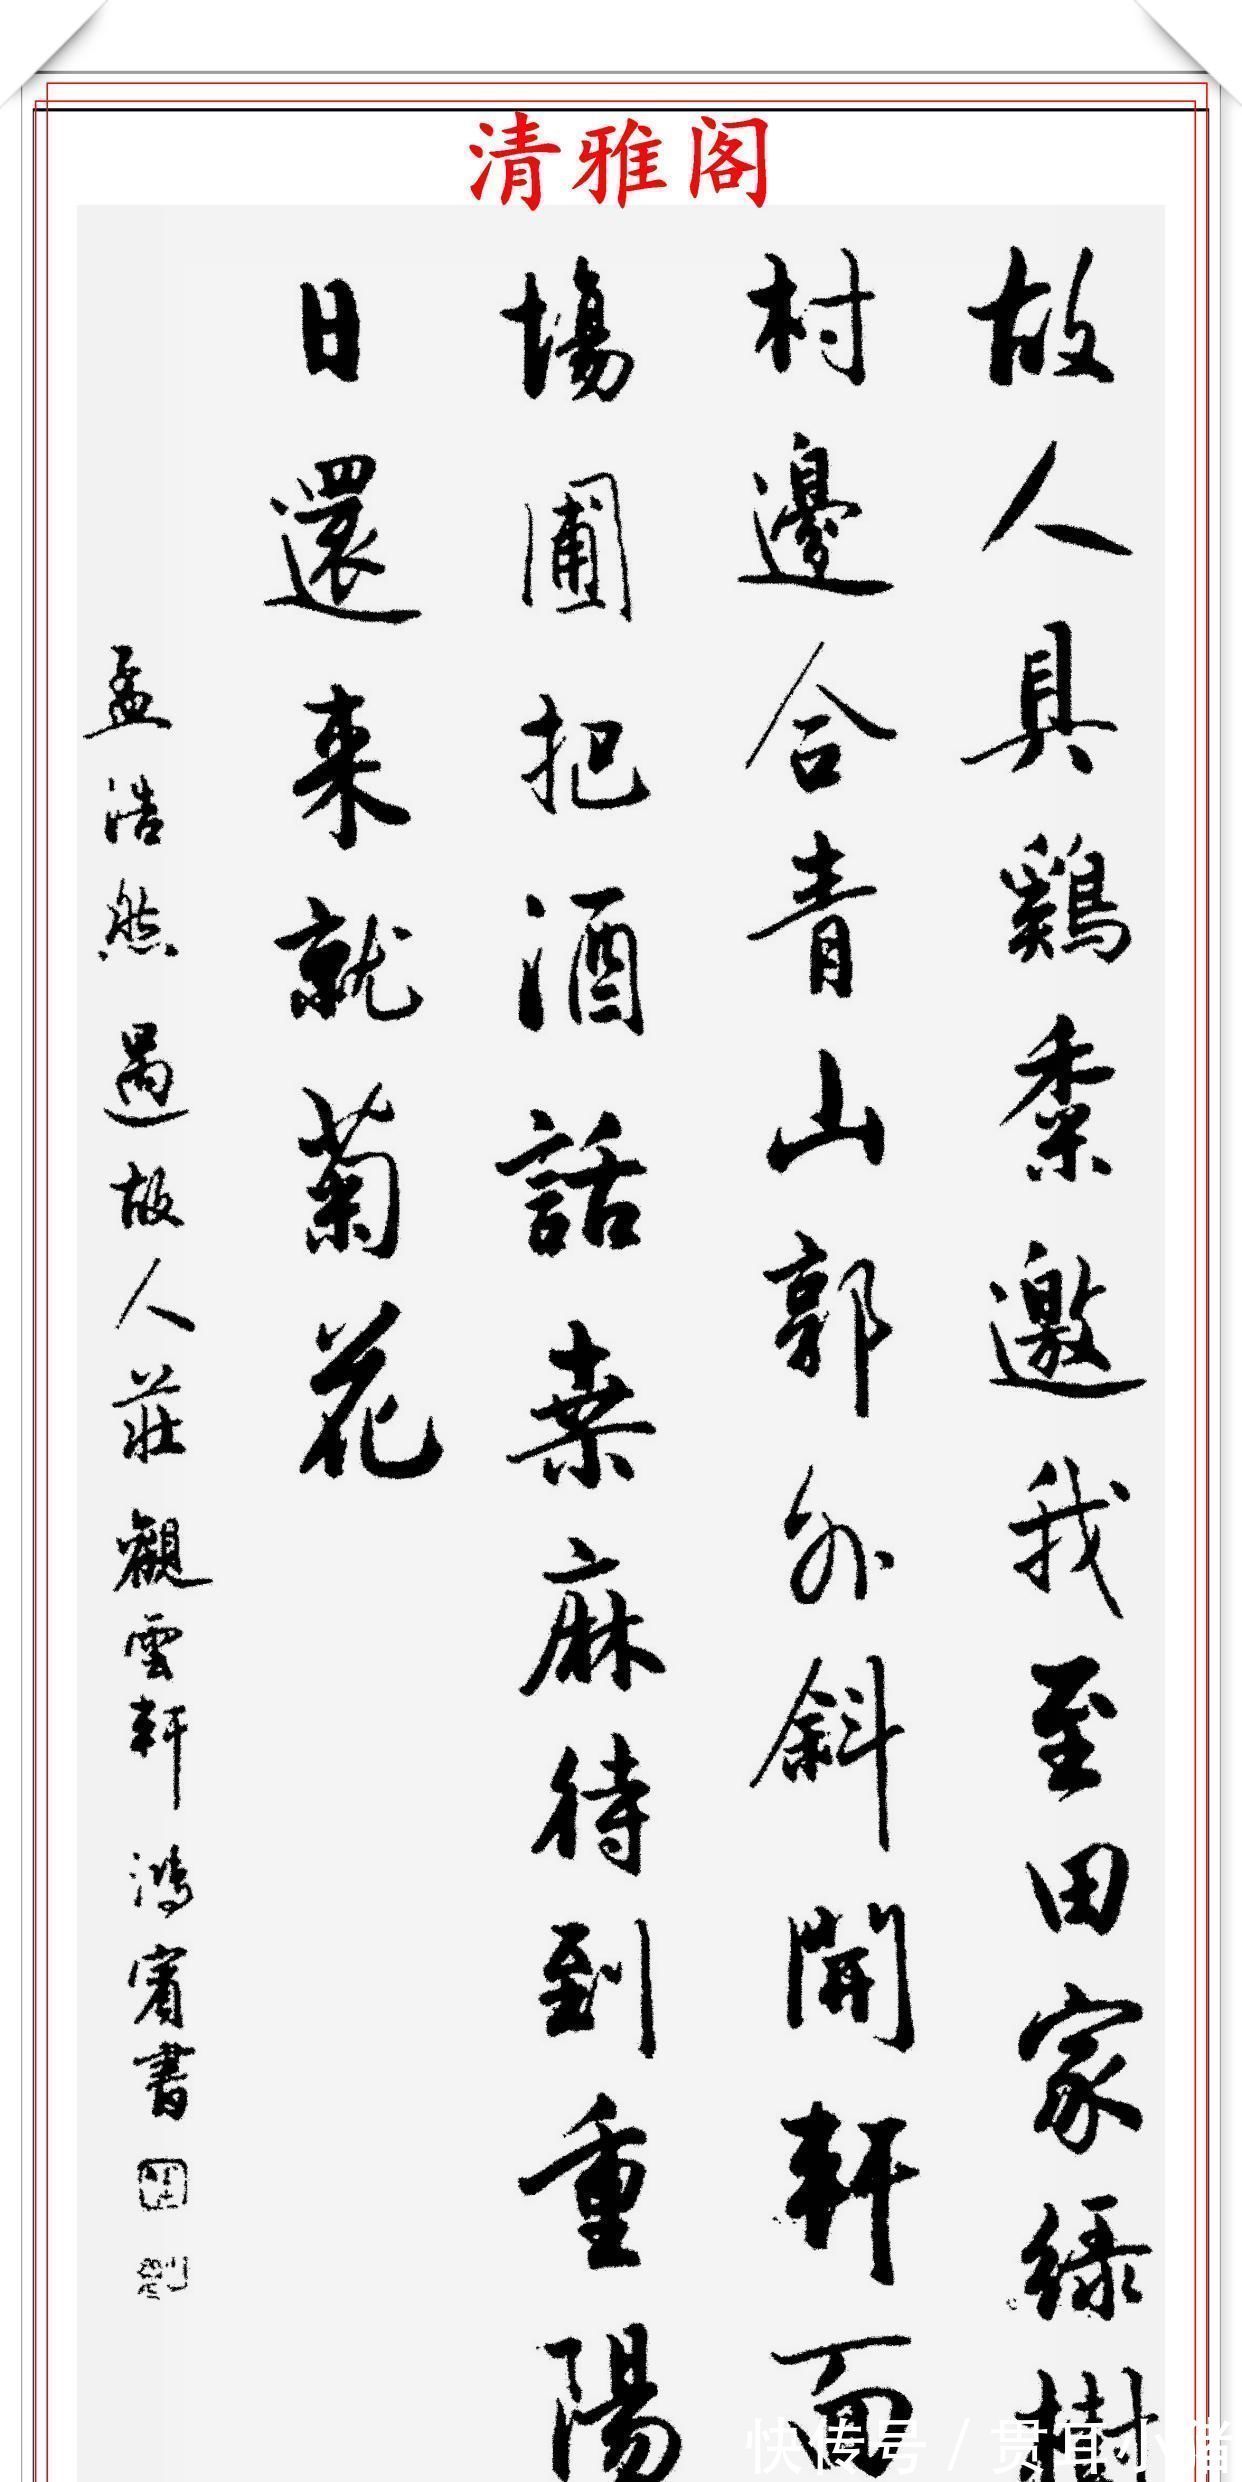 清雅阁
故人具鷄黍邀我至田家緑樹
村邊合青山郭外斜開軒面
場圃把酒話桒麻待到重陽
日還来就菊花
孟浩然過故人莊觀雲軒鴻賓書
快传号/贯耳小猪